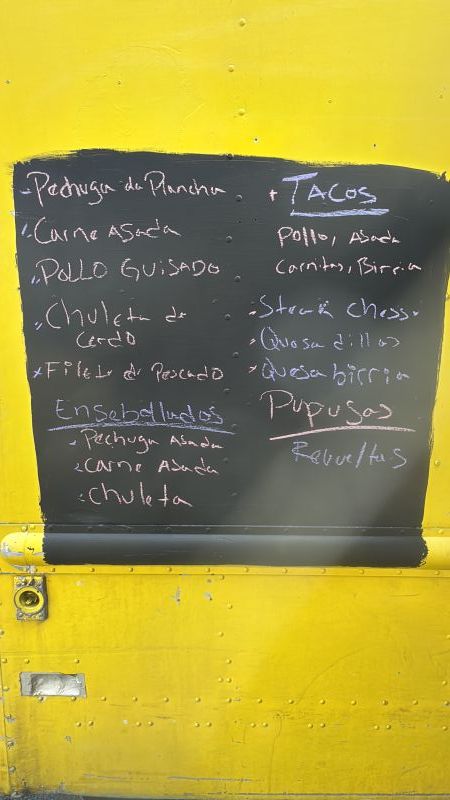 - Pechuga da Plancha
- Carne Asada
- POLLO GUISADO
- Chuleta de
cerdo
* Filete de Pescado
Ensebollados
- Pechuga Asada
- Carne Asada
- Chuleta
+ TACOS
Pollo, Asada
Carnitas, Birria
- Steak chess
- Quesadillas
- Quesabirria
Pupusas
Revueltas